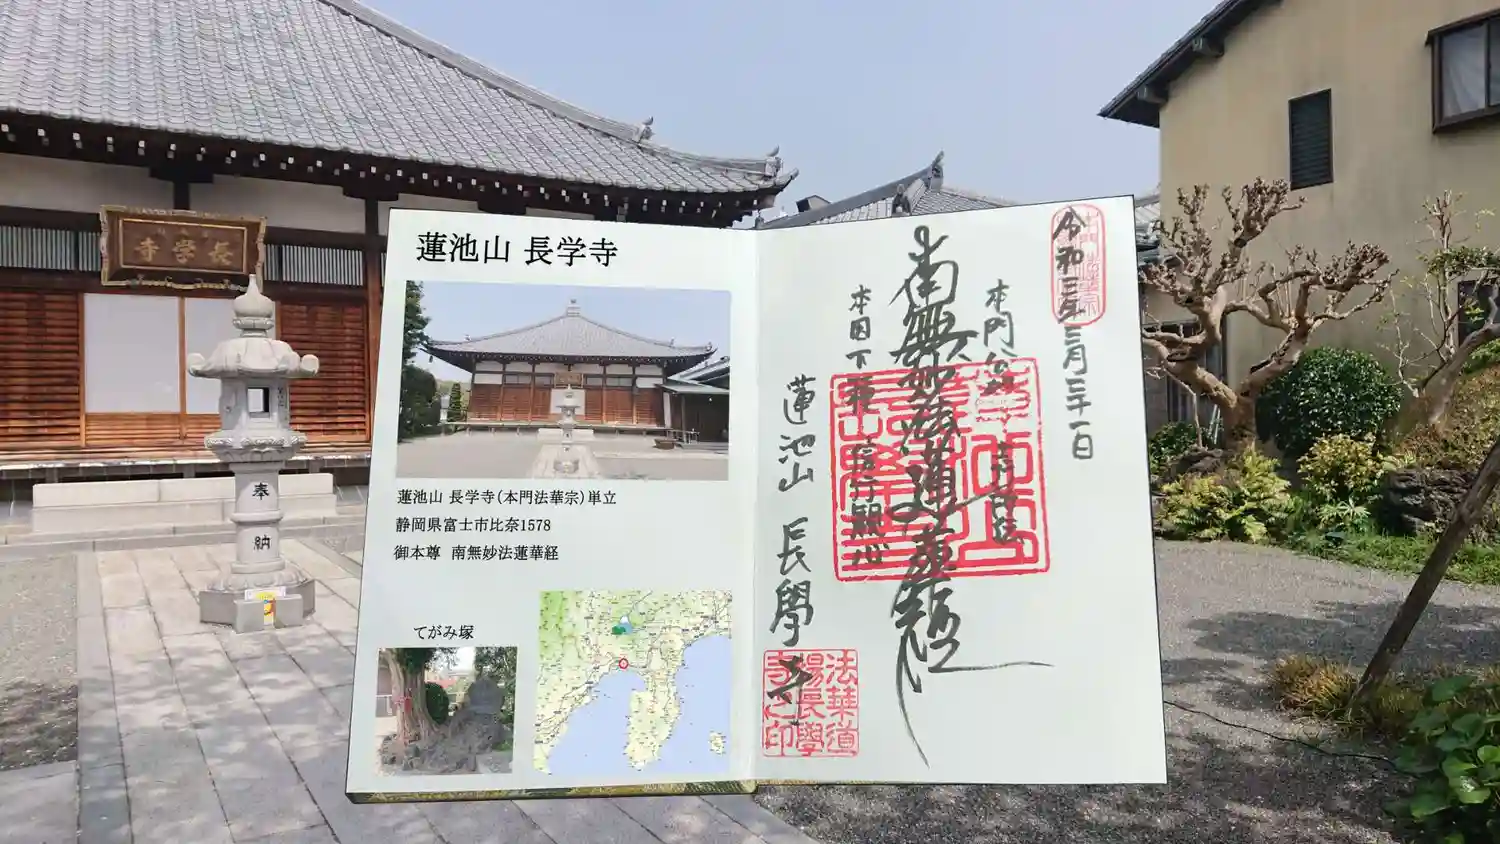 長学寺
奉
納
蓮池山 長学寺
蓮池山 長学寺(本門法華宗)単立
静岡県富士市比奈1578
御本尊 南無妙法蓮華経
てがみ塚
令和三年三月三十一日
本門
南無妙法蓮華経
本因下種
信行観心
蓮池山 長學寺
法華道
場長學
寺之印